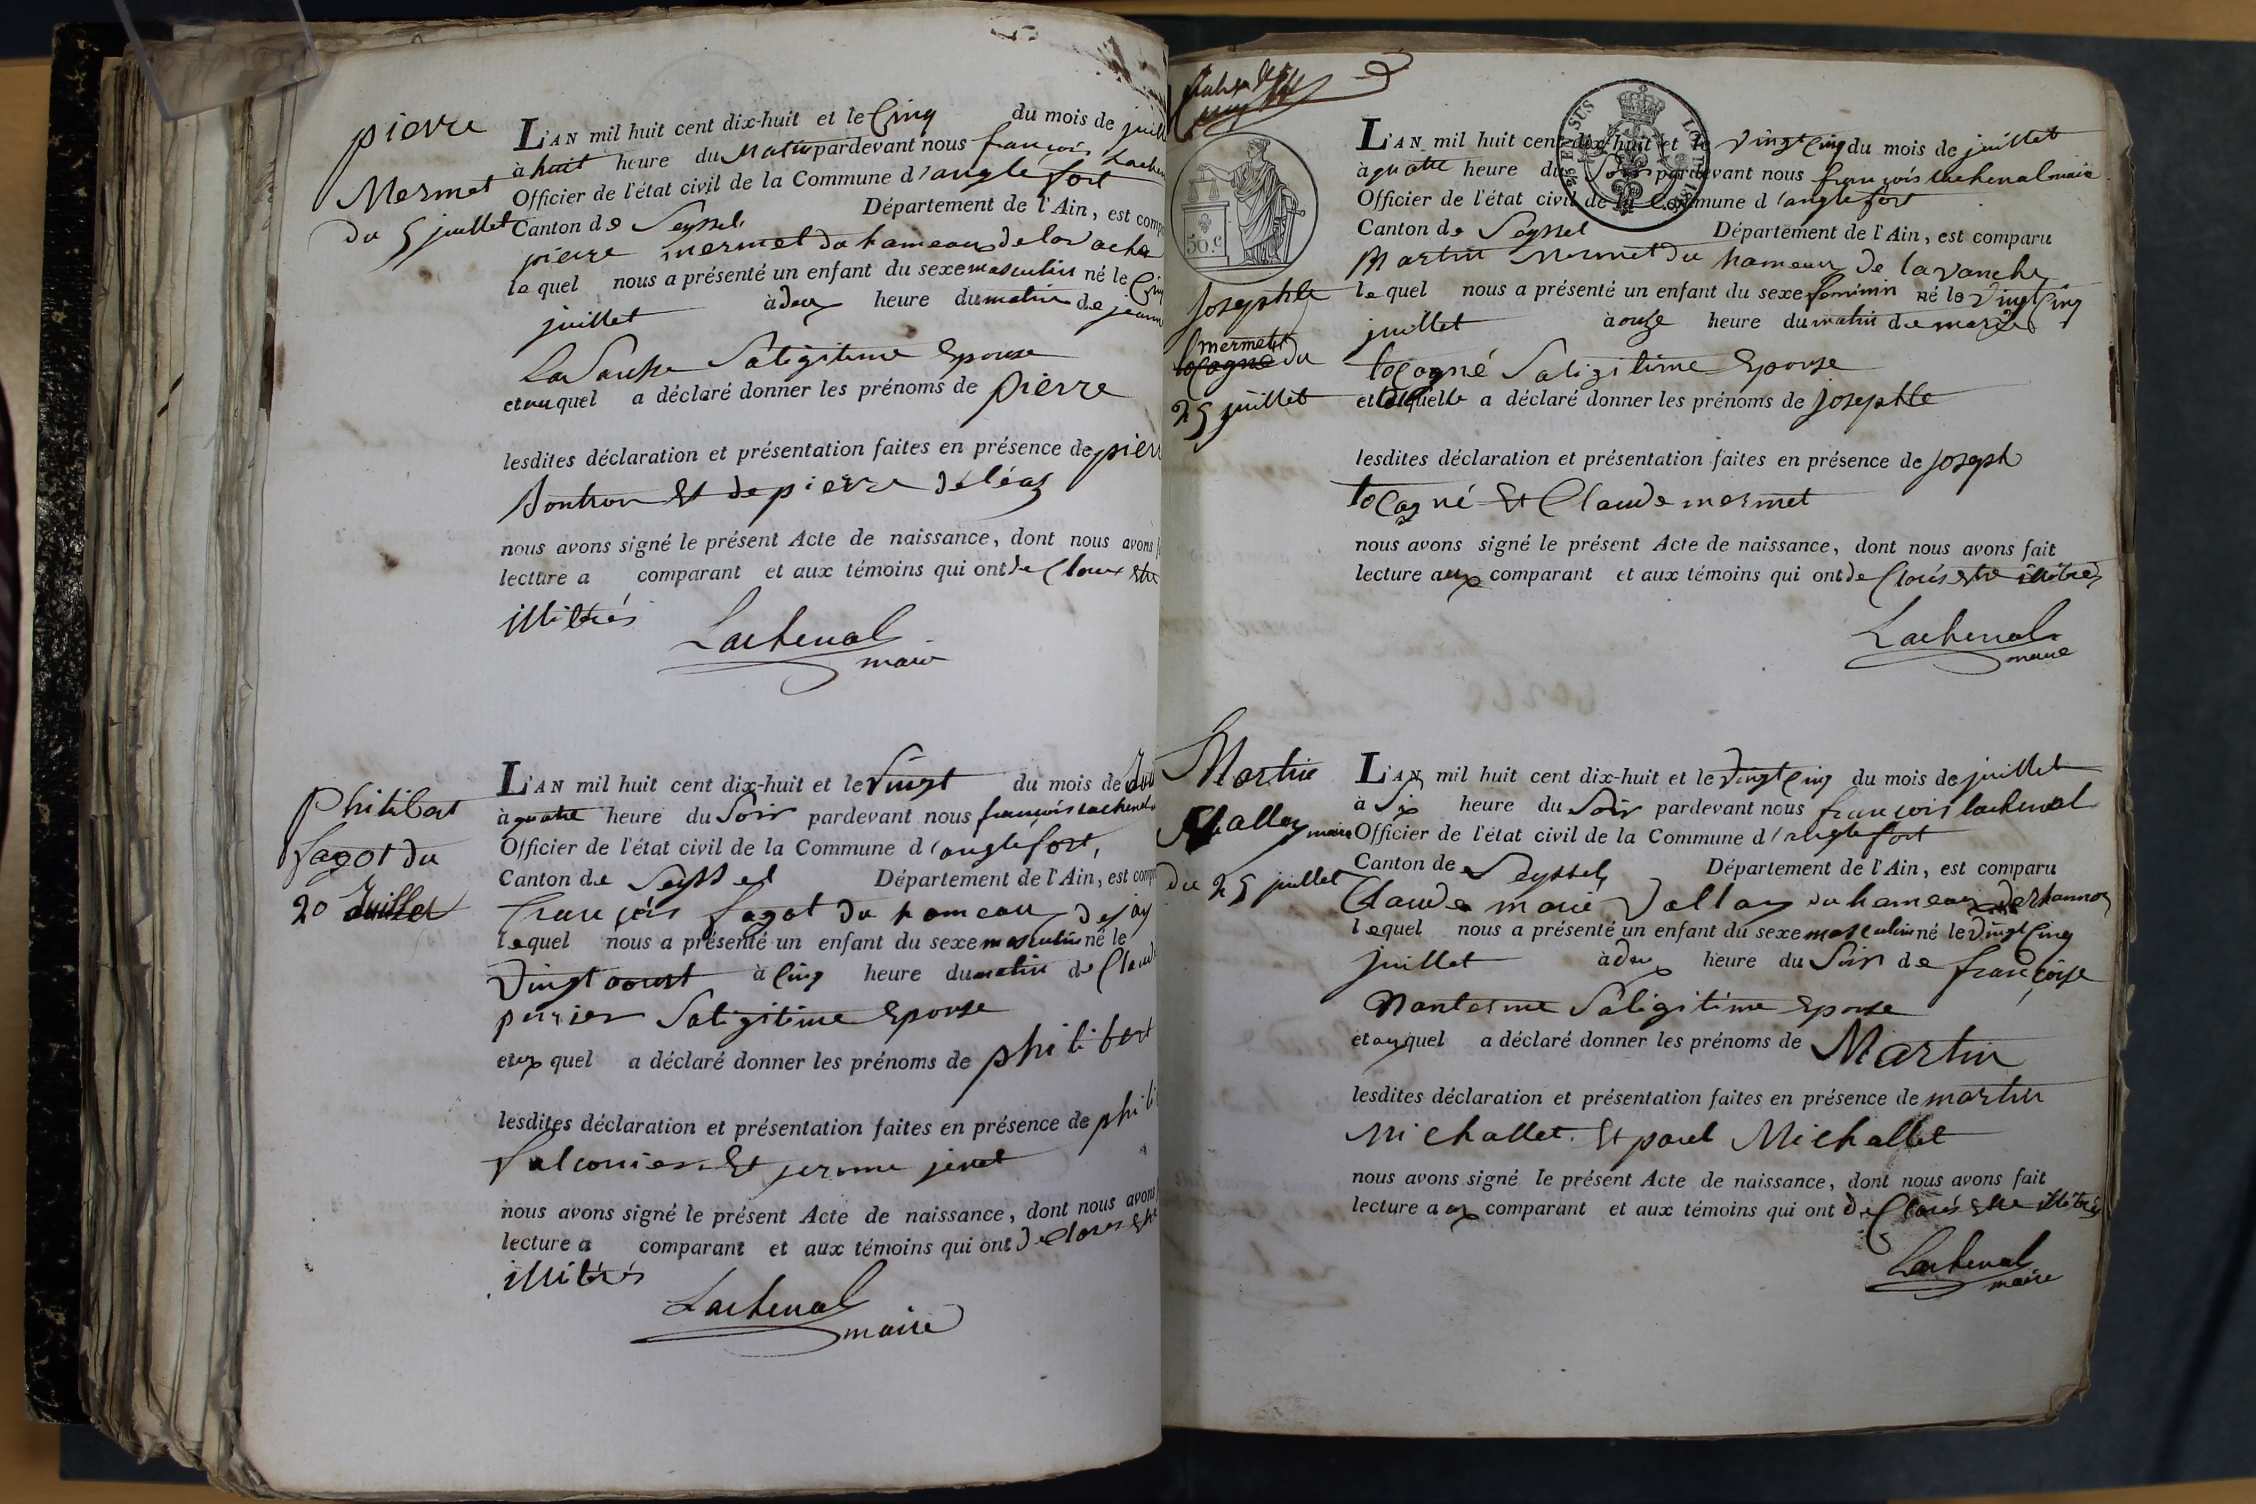 pierre
Mermet
du 5 juillet
L'AN mil huit cent dix-huit et le Cinq du mois de juill
à huit heure du Matin pardevant nous françois Lachen
Officier de l'état civil de la Commune d'anglefort
Canton de Seyssel Département de l'Ain, est comp
pierre mermet du hameau de
lequel nous a présenté un enfant du sexe masculin né le Cinq
juillet à deux heure du matin de jeann
Sa légitime Epouse
et auquel a déclaré donner les prénoms de pierre
lesdites déclaration et présentation faites en présence de pierr
et de pierre déléaz
nous avons signé le présent Acte de naissance, dont nous avons f
lecture a comparant et aux témoins qui ont de Clarer Etre
illitrés
Lachenal
maire
Philibert
fagot du
20 Juillet
L'AN mil huit cent dix-huit et le Vingt du mois de Jui
à quatre heure du Soir pardevant nous françois Lachenal
Officier de l'état civil de la Commune d'anglefort,
Canton de Seyssel Département de l'Ain, est comp
françois fagot du hameau
lequel nous a présenté un enfant du sexe masculin né le
Vingt aoust à Cinq heure du matin de Claud
perrier Sa légitime Epouse
et auquel a déclaré donner les prénoms de philibert
lesdites déclaration et présentation faites en présence de phili
falconier Et
nous avons signé le présent Acte de naissance, dont nous avons
lecture a comparant et aux témoins qui ont de Clarer Etre
illitrés
Lachenal
maire
2S ET SUS LOI DE 181
50 c.
Josephte
mermet
tocagné du
25 juillet
L'AN mil huit cent dix-huit et le Vingt Cinq du mois de juillet
à quatre heure du Soir pardevant nous françois Lachenal maire
Officier de l'état civil de la Commune d'anglefort
Canton de Seyssel Département de l'Ain, est comparu
Martin mermet du hameau de lavanche
lequel nous a présenté un enfant du sexe féminin né le Vingt Cinq
juillet à onze heure du matin de marie
tocagné Sa légitime Epouse
et à laquelle a déclaré donner les prénoms de Josephte
lesdites déclaration et présentation faites en présence de Joseph
tocagné Et Claude mermet
nous avons signé le présent Acte de naissance, dont nous avons fait
lecture aux comparant et aux témoins qui ont de Clarés Etre illitrés
Lachenal
maire
Martin
Vallay
du 25 juillet
L'AN mil huit cent dix-huit et le Vingt Cinq du mois de juillet
à Six heure du Soir pardevant nous françois Lachenal
maire Officier de l'état civil de la Commune d'anglefort
Canton de Seyssel Département de l'Ain, est comparu
Claude marie Vallay du hameau
lequel nous a présenté un enfant du sexe masculin né le Vingt Cinq
juillet à deux heure du Soir de françoise
Nanterme Sa légitime Epouse
et auquel a déclaré donner les prénoms de Martin
lesdites déclaration et présentation faites en présence de martin
Michallet Et paul Michallet
nous avons signé le présent Acte de naissance, dont nous avons fait
lecture aux comparant et aux témoins qui ont de Clarés Etre illitrés
Lachenal
maire